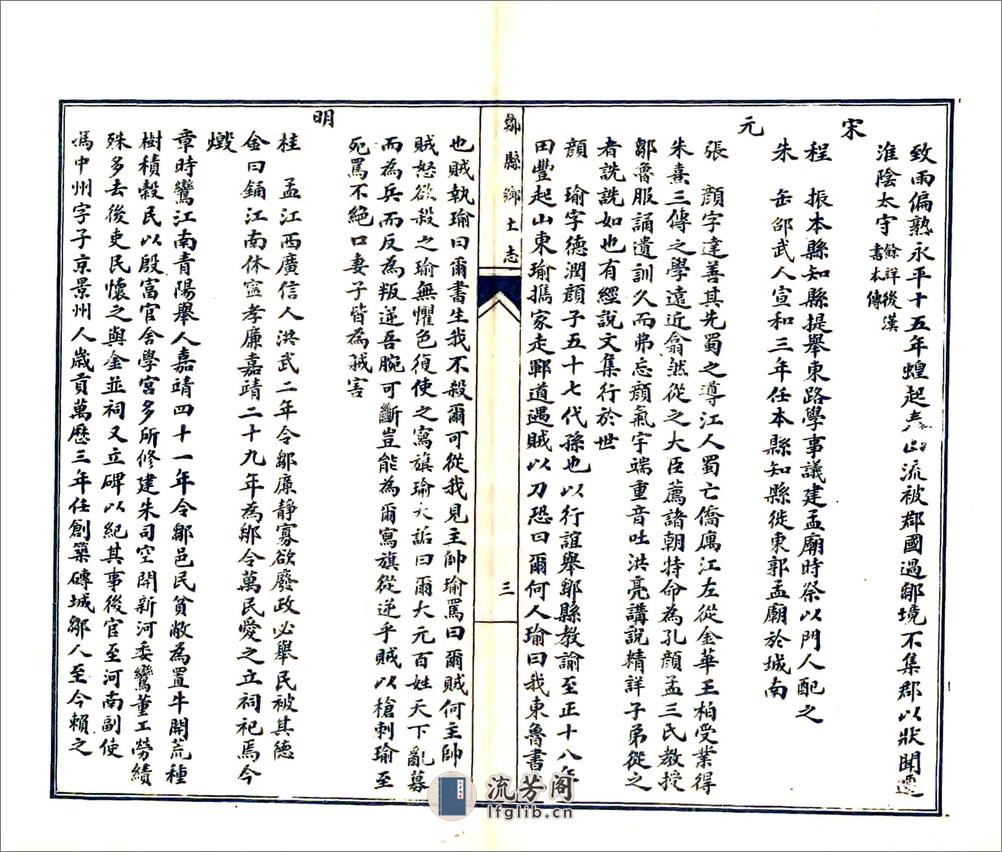 致雨偏熟永平十五年蝗起泰山流被郡國過鄒境不集郡以狀聞遷
淮陰太守餘詳後漢書本傳
宋
程　振本縣知縣提舉東路學事議建孟廟時祭以門人配之
朱　缶邵武人宣和三年任本縣知縣徙東郭孟廟於城南
元
張　顏字達善其先蜀之導江人蜀亡僑寓江左從金華王柏受業得
朱熹三傳之學遠近翕然從之大臣薦諸朝特命為孔顏孟三氏教授
鄒魯服誦遺訓久而弗忘顏氣宇端重音吐洪亮講說精詳子弟從之
者詵詵如也有經說文集行於世
顏　瑜字德潤顏子五十七代孫也以行誼舉鄒縣教諭至正十八年
田豐起山東瑜攜家走鄆道遇賊以刀恐曰爾何人瑜曰我東魯書
鄒縣鄉土志
三
也賊執瑜曰爾書生我不殺爾可從我見主帥瑜罵曰爾賊何主帥
賊怒欲殺之瑜無懼色復使之寫旗瑜大詬曰爾大元百姓天下亂募
而為兵而反為叛逆吾腕可斷豈能為爾寫旗從逆乎賊以槍刺瑜至
死罵不絕口妻子皆為賊害
明
桂　孟江西廣信人洪武二年令鄒廉靜寡欲廢政必舉民被其德
金曰銷江南休寧孝廉嘉靖二十九年為鄒令萬民愛之立祠祀焉今
燬
章時鸞江南青陽舉人嘉靖四十一年令鄒邑民貧敝為置牛開荒種
樹積穀民以殷富官舍學宮多所修建朱司空開新河委鸞董工勞績
殊多去後吏民懷之與金並祠又立碑以紀其事後官至河南副使
馮中州字子京景州人歲貢萬歷三年任創築磚城鄒人至今賴之
流芳阁
lfglib.cn